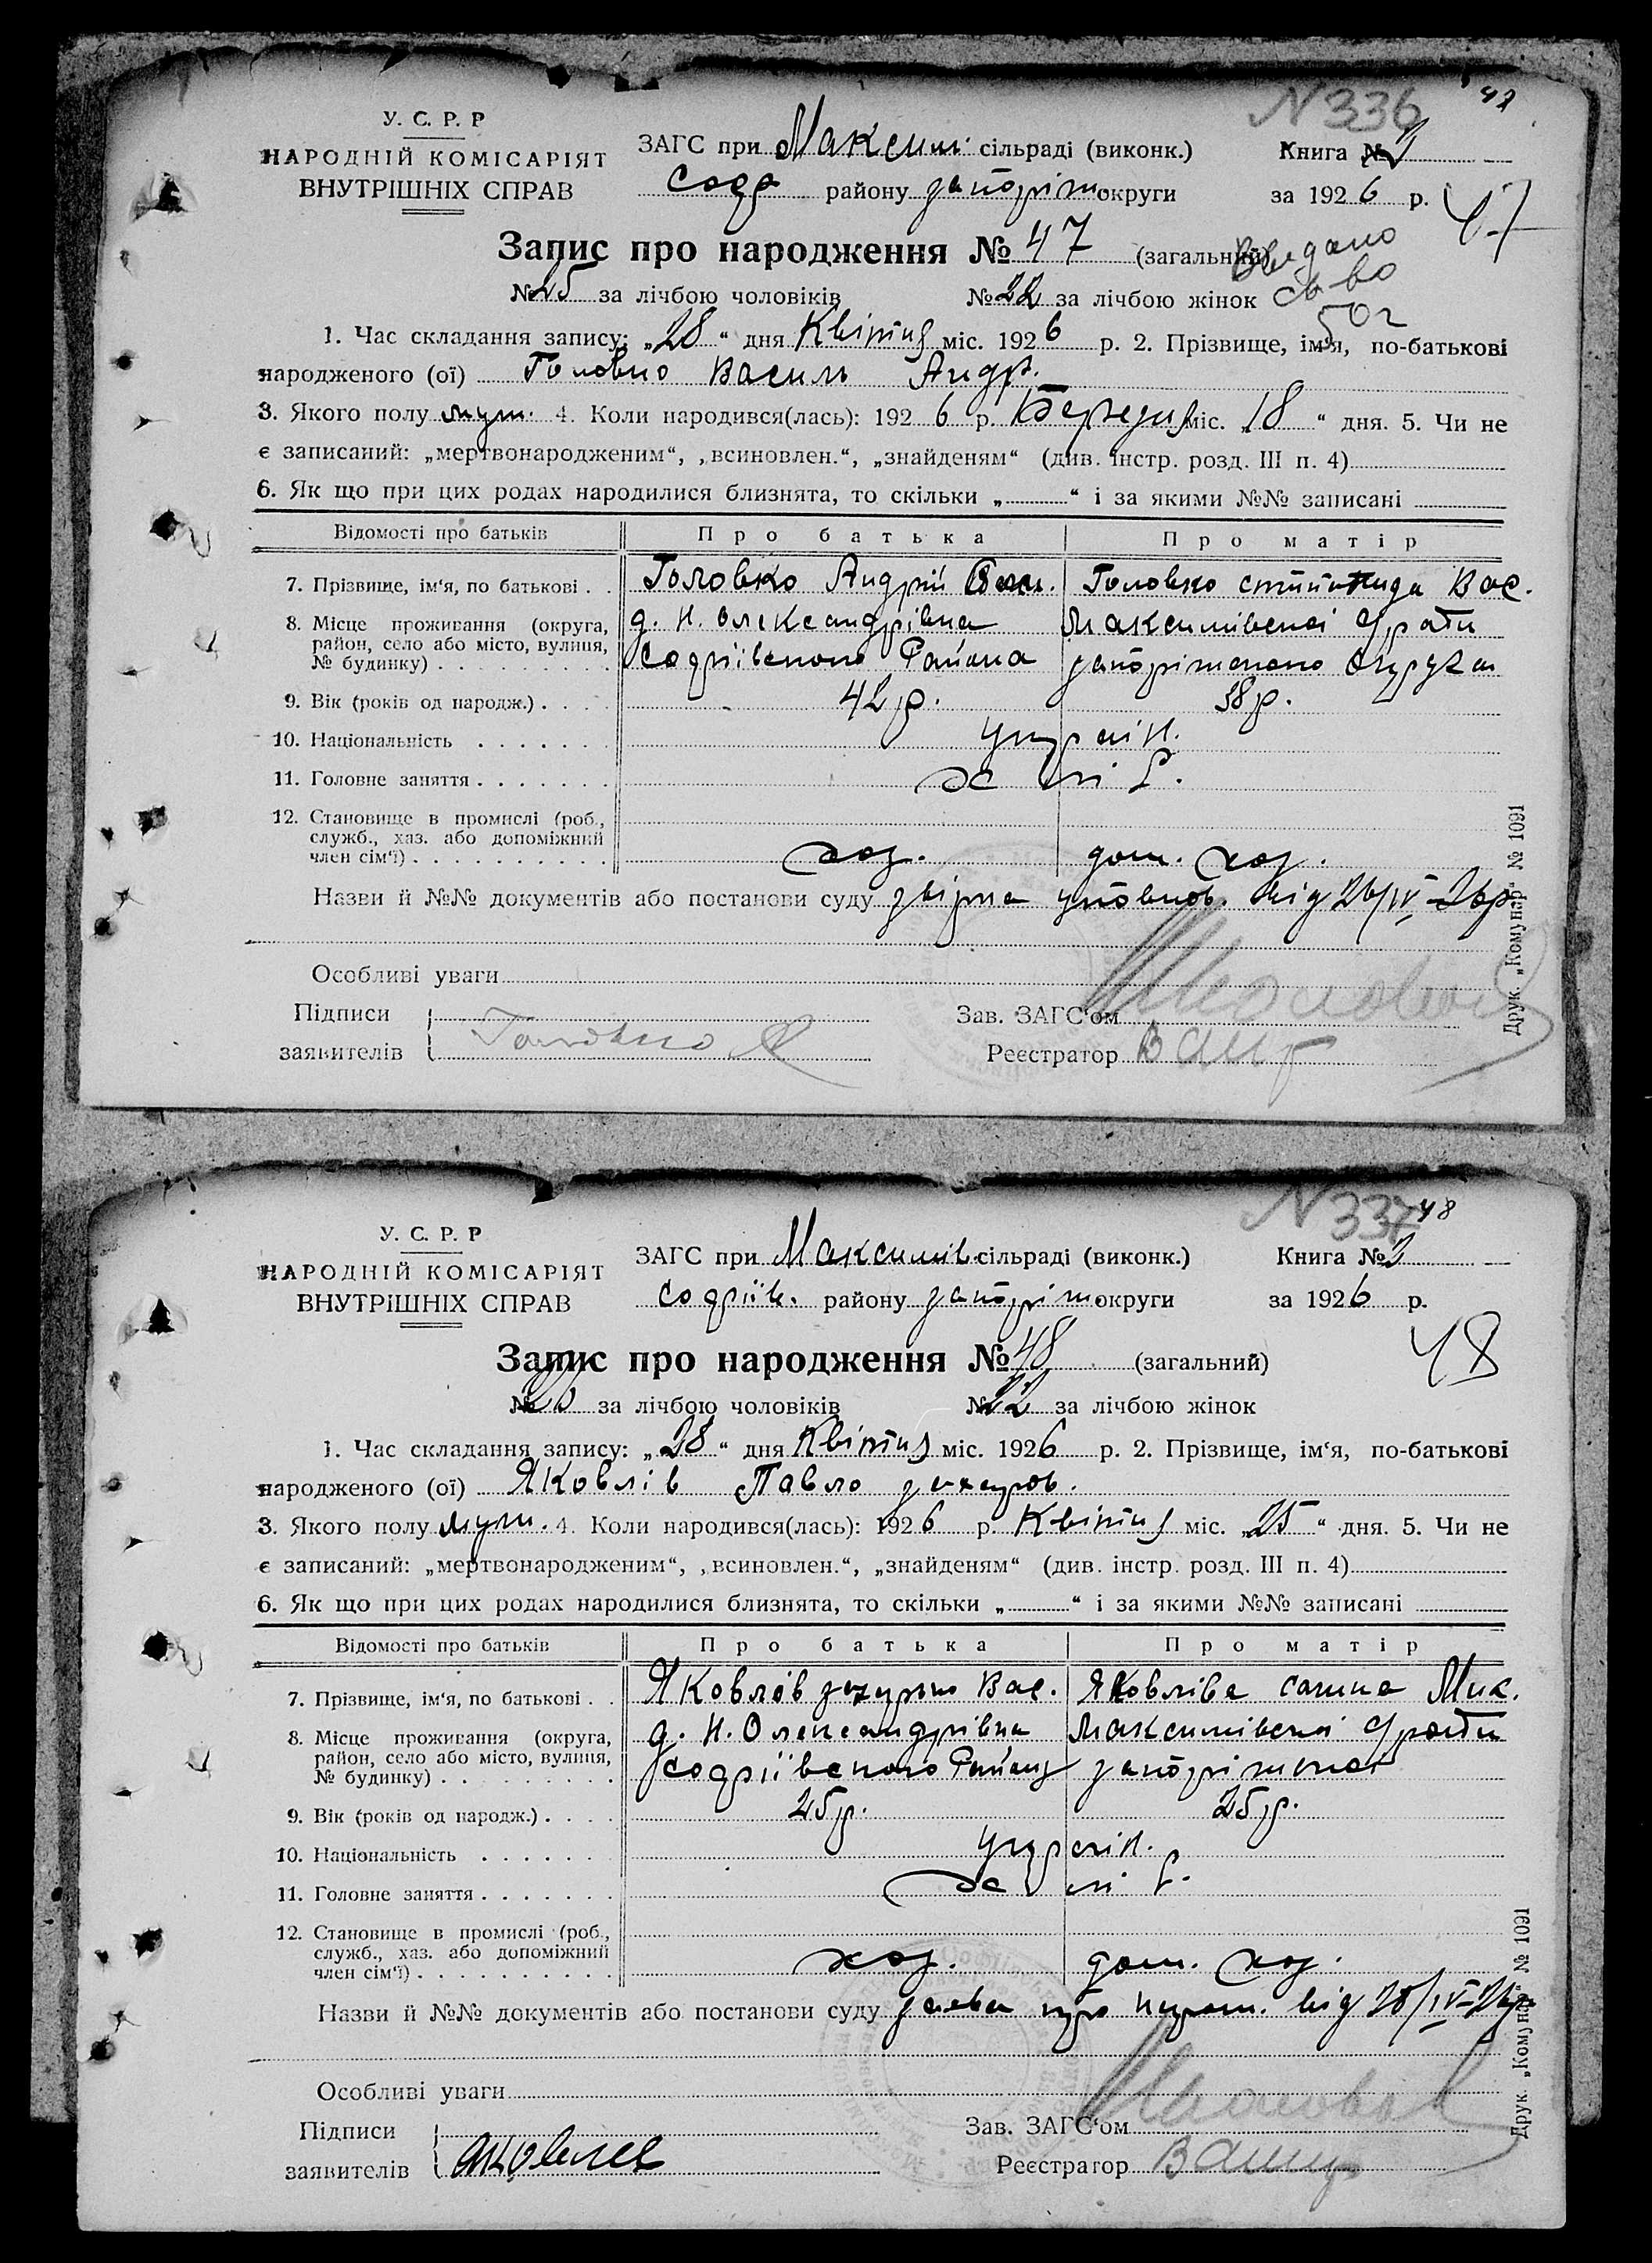 N 336 47
У. С. Р. Р
НАРОДНІЙ КОМІСАРІЯТ
ВНУТРІШНІХ СПРАВ
ЗАГС при Максим. сільраді (виконк.)
Софр району запоріж округи
Книга № 3
за 1926 р.
47
Запис про народження № 47 (загальний)
Видано
св-во
50г
№ 25 за лічбою чоловіків № 22 за лічбою жінок
1. Час складання запису: „28“ дня Квітня міс. 1926 р. 2. Прізвище, ім'я, по-батькові
народженого (ої) Головко Василь Андр.
3. Якого полу муж. 4. Коли народився(лась): 1926 р. Березня міс. „18“ дня. 5. Чи не
є записаний: „мертвонародженим“, „всиновлен.“, „знайденям“ (див. інстр. розд. III п. 4)
6. Як що при цих родах народилися близнята, то скільки „ “ і за якими №№ записані
Відомості про батьків Про батька Про матір
7. Прізвище, ім'я, по батькові . . Головко Андрій Вас. Головко Вас.
8. Місце проживання (округа, район, село або місто, вулиця, № будинку) д. Н. Олександрівка Максимівської С/ради
Софіївського Района запоріжського Округа
9. Вік (років од народж.) 42 р. 38 р.
10. Національність україн.
11. Головне заняття хліб.
12. Становище в промислі (роб., служб., хаз. або допоміжний член сім'ї) хоз. дом. хоз.
Назви й №№ документів або постанови суду уповнов. від 26/IV-26р
Особливі уваги
Підписи
заявителів Головко А
Зав. ЗАГС'ом
Реєстратор
Друк. „Комунар“ № 1091
N 337 48
У. С. Р. Р
НАРОДНІЙ КОМІСАРІЯТ
ВНУТРІШНІХ СПРАВ
ЗАГС при Максимів сільраді (виконк.)
Софіїв. району запоріж округи
Книга № 3
за 1926 р.
48
Запис про народження № 48 (загальний)
№ 26 за лічбою чоловіків № 22 за лічбою жінок
1. Час складання запису: „28“ дня Квітня міс. 1926 р. 2. Прізвище, ім'я, по-батькові
народженого (ої) Яковлів Павло захаров.
3. Якого полу муж. 4. Коли народився(лась): 1926 р. Квітня міс. „25“ дня. 5. Чи не
є записаний: „мертвонародженим“, „всиновлен.“, „знайденям“ (див. інстр. розд. III п. 4)
6. Як що при цих родах народилися близнята, то скільки „ “ і за якими №№ записані
Відомості про батьків Про батька Про матір
7. Прізвище, ім'я, по батькові . . Яковлів захарько Вас. Яковліва Мик.
8. Місце проживання (округа, район, село або місто, вулиця, № будинку) д. Н. Олександрівка Максимівської С/ради
Софіївського Району запоріжської
9. Вік (років од народж.) 25 р. 25 р.
10. Національність україн.
11. Головне заняття хліб.
12. Становище в промислі (роб., служб., хаз. або допоміжний член сім'ї) хоз. дом. хоз.
Назви й №№ документів або постанови суду заява про від 28/IV-26р
Особливі уваги
Підписи
заявителів Яковлев
Зав. ЗАГС'ом
Реєстратор
Друк. „Комунар“ № 1091